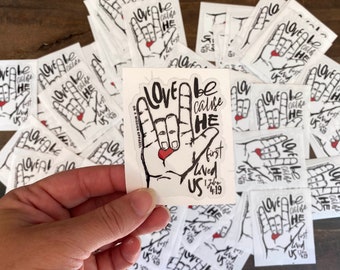 LOVE be
cause
HE
first
loved
US
1 John
4:19